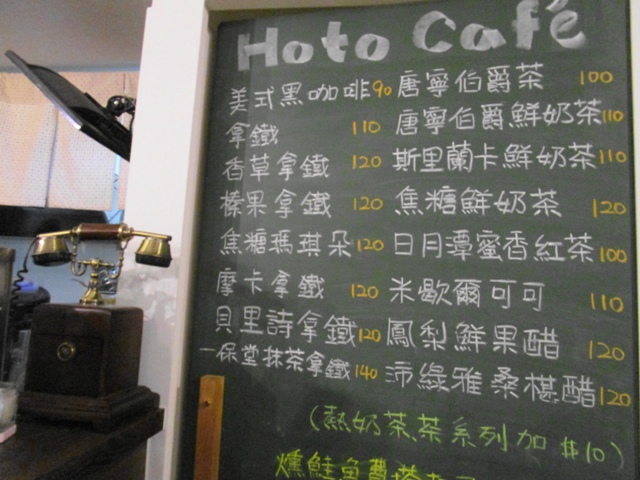 Hoto Café
美式黑咖啡90 唐寧伯爵茶 100
拿鐵 110 唐寧伯爵鮮奶茶110
香草拿鐵 120 斯里蘭卡鮮奶茶110
榛果拿鐵 120 焦糖鮮奶茶 120
焦糖瑪琪朵120 日月潭蜜香紅茶100
摩卡拿鐵 120 米歇爾可可 110
貝里詩拿鐵120 鳳梨鮮果醋 120
一保堂抹茶拿鐵140 沛綠雅桑椹醋120
(熱奶茶.茶系列加$10)
燻鮭魚